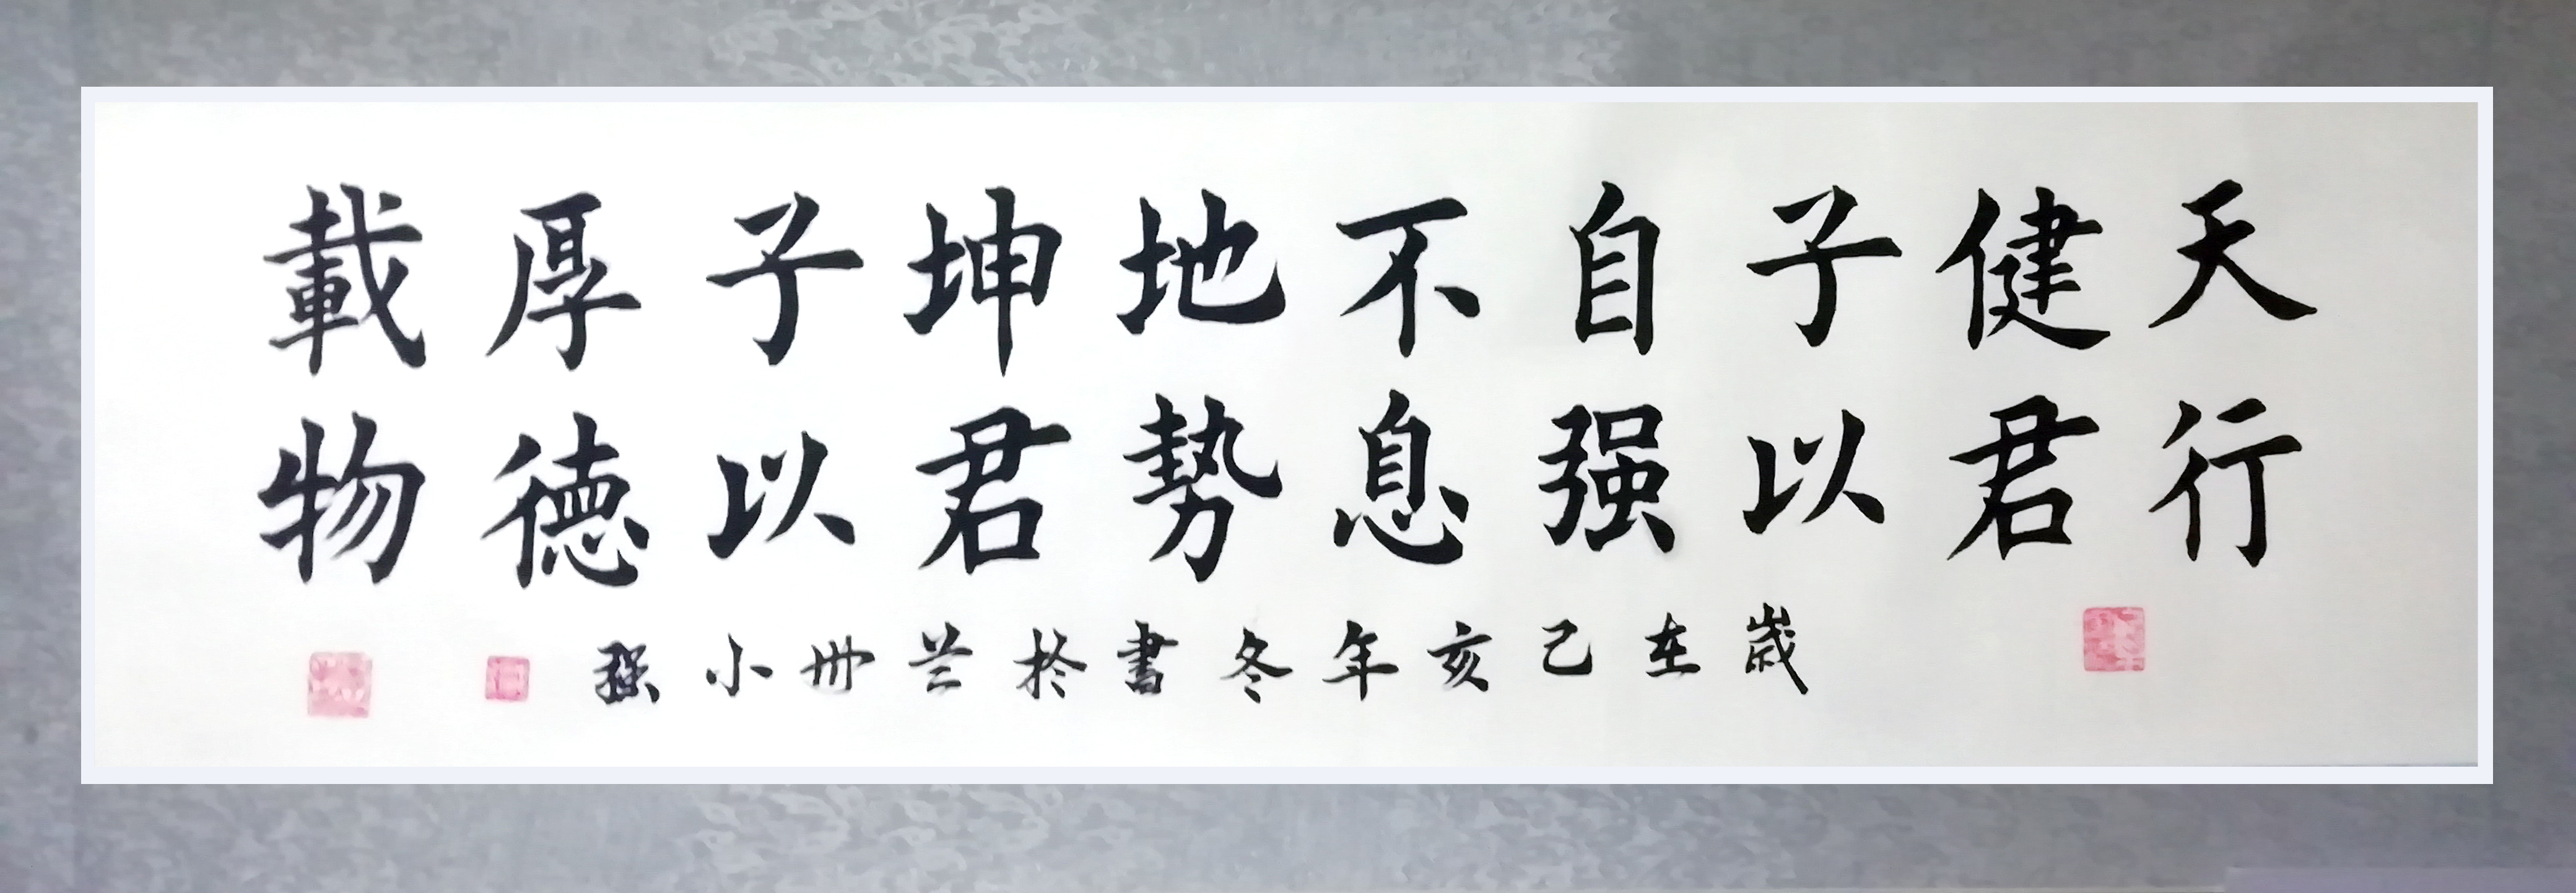 天行
健君
子以
自强
不息
地勢
坤君
子以
厚德
載物
歲在己亥年冬書於兰州小强